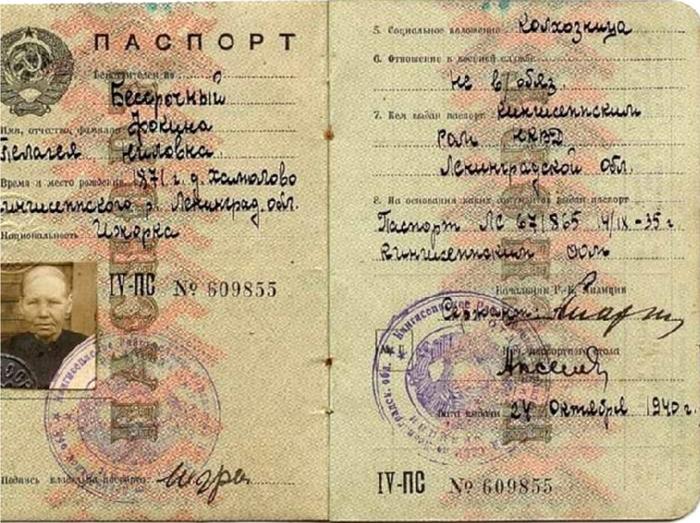 ПАСПОРТ
Действителен на
Бессрочный
Фокина
Имя, отчество, фамилия
Пелагея Ниловна
Время и место рождения 1871 г. д. Хамолово
Кингисеппского р. Ленинград. обл.
Национальность Ижорка
IV-ПС № 609855
Подпись владельца паспорта:
5. Социальное положение Колхозница
6. Отношение к военной службе
не в/обяз.
7. Кем выдан паспорт Кингисеппским
РОМ НКВД
Ленинградской обл.
8. На основании каких документов выдан паспорт
Паспорт ЛС 67/865 14/IX-35 г
Кингисеппским РОМ
Начальник Р.-К. Милиции
Сержант
М.П.
Нач. паспортного стола
Дата выдачи 24 Октября 1940 г.
IV-ПС № 609855